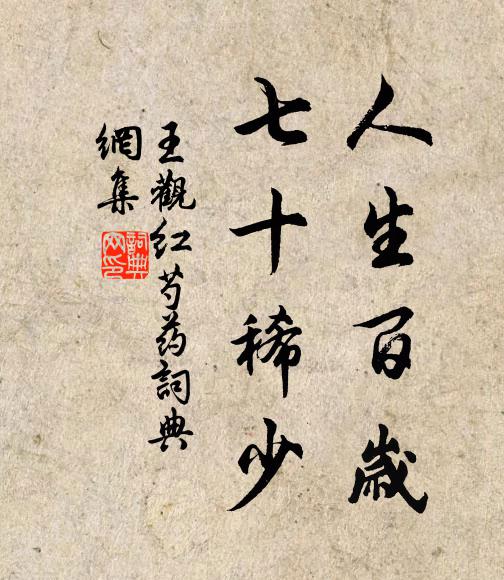 人生百歲
七十稀少
王觀紅芍药詞典
網集
詞典
网印